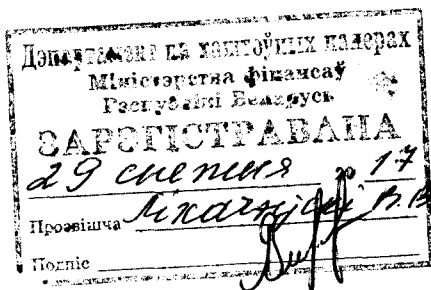 Дэпартамент па каштоўных паперах
Міністэрства фінансаў
Рэспублікі Беларусь
ЗАРЭГІСТРАВАНА
29 снежня 20 17
Прозвішча
Подпіс